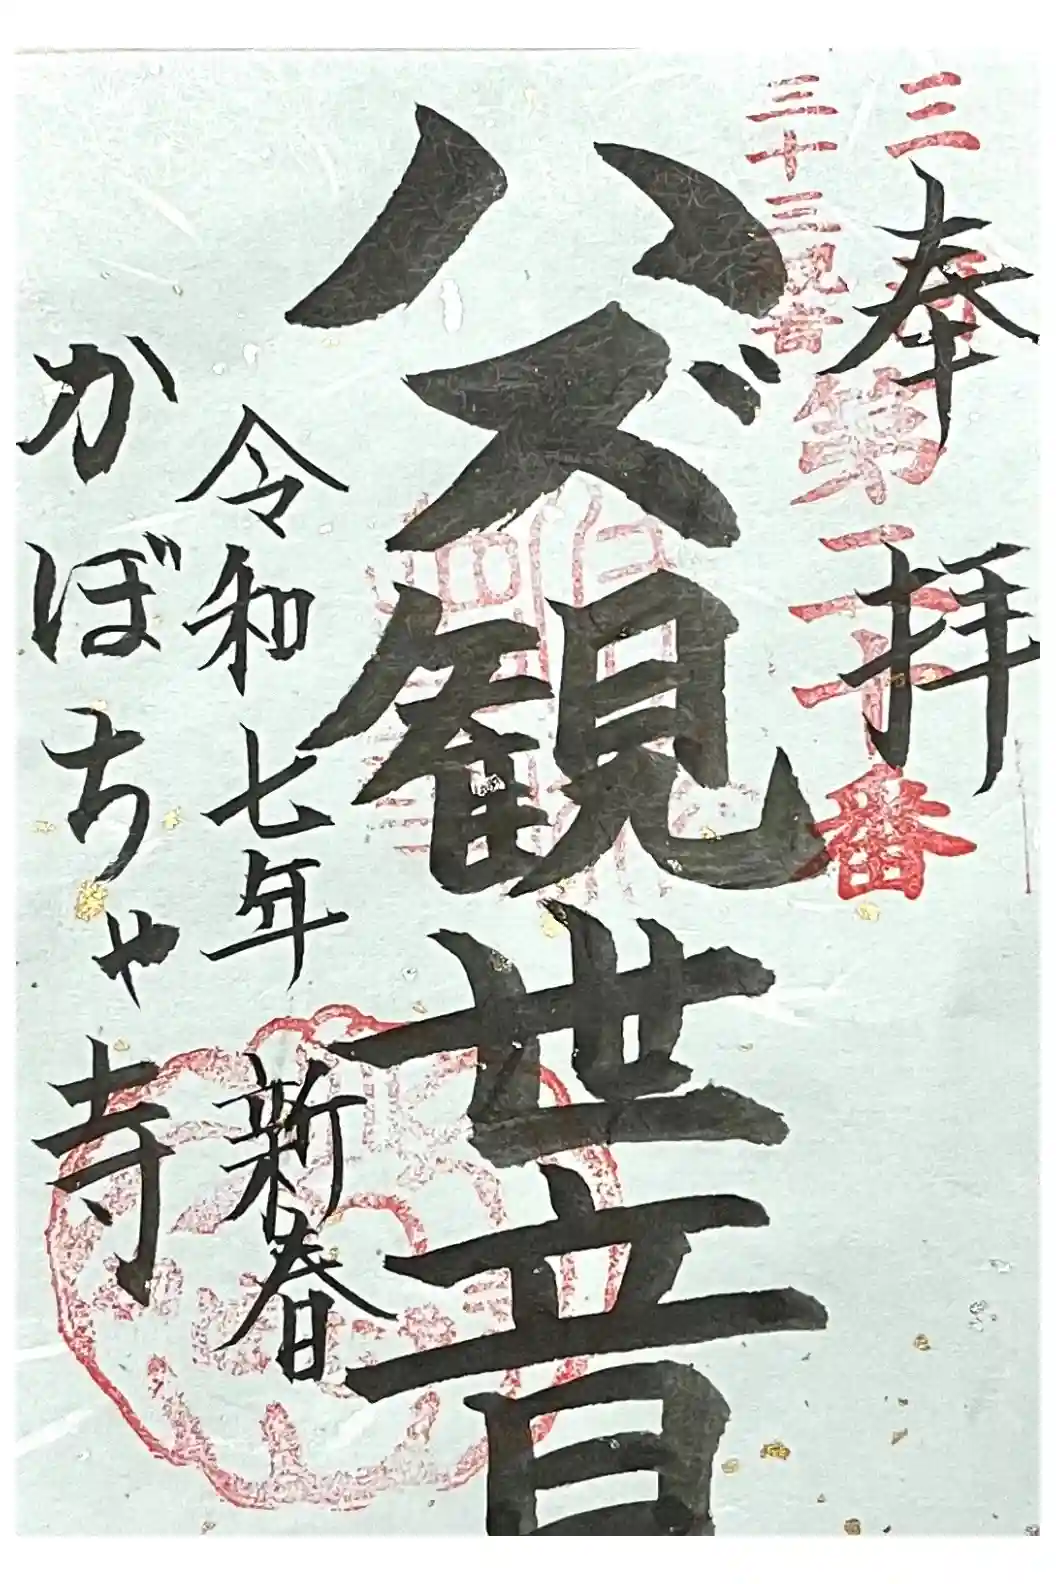 三河
三十三観音
第二十番
奉拝
ハズ観世音
令和七年 新春
かぼちゃ寺